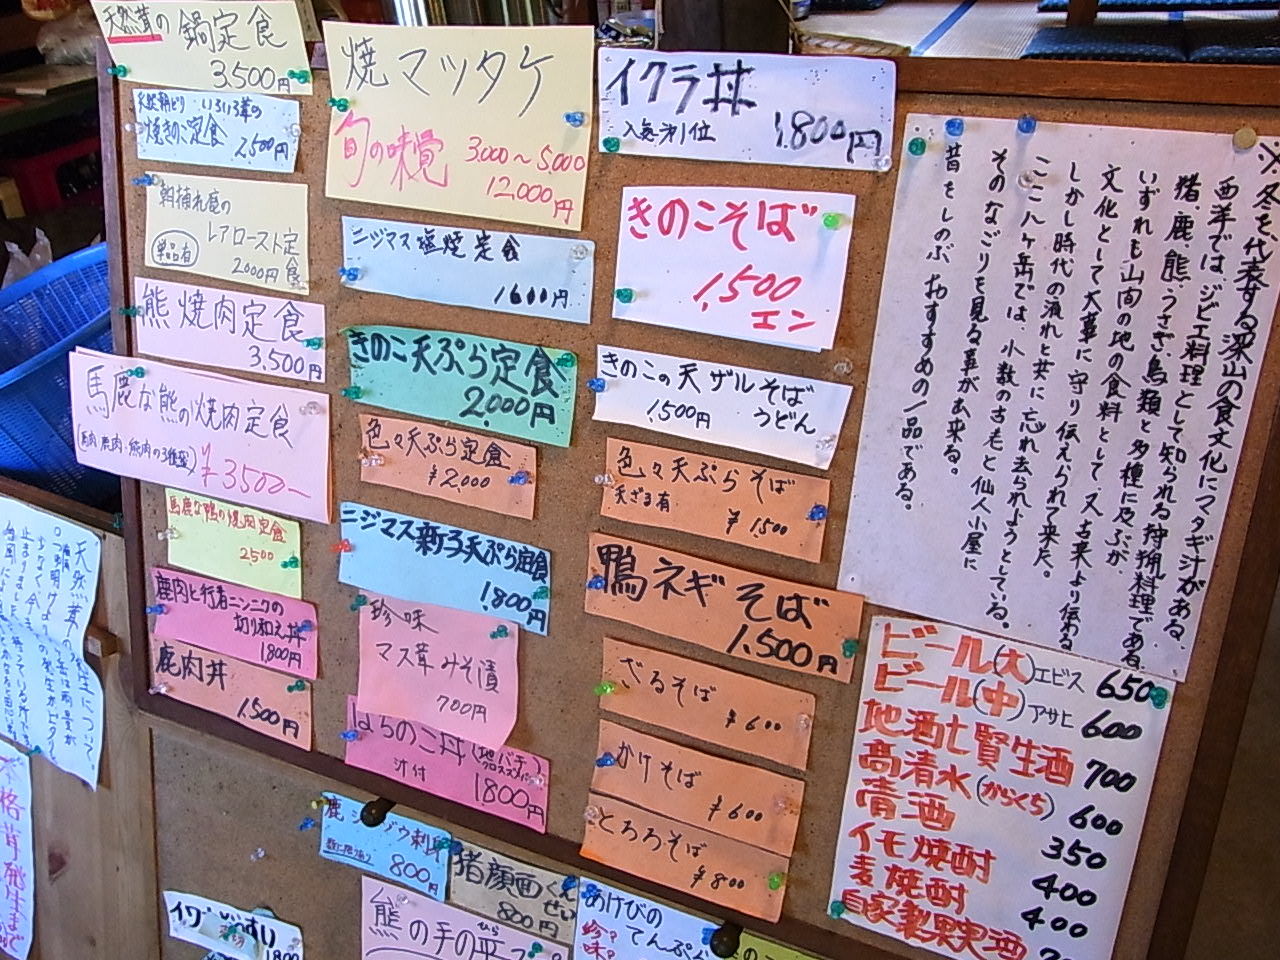 天然茸の鍋定食
3,500円
いろいろ茸の
焼きのこ定食 2,500円
朝捕れ鹿の
レアロースト定食
単品有
2000円
熊焼肉定食
3,500円
馬鹿な熊の焼肉定食
(馬肉・鹿肉・熊肉の3種盛)
¥3500-
馬鹿な鴨の焼肉定食
2,500
鹿肉と行者ニンニクの
切り和え丼
1800円
鹿肉丼
1,500円
焼マツタケ
旬の味覚
3,000～5,000
12,000円
ニジマス塩焼定食
1600円
きのこ天ぷら定食
2,000円
色々天ぷら定食
¥2,000
ニジマス新子天ぷら定食
1,800円
珍味
マス茸みそ漬
700円
はちのこ丼
(地バチ クロスズメバチ)
汁付 1800円
800円
猪顔面くんせい
800円
熊の手の平
ひら
イクラ丼
入荷 1,800円
きのこそば
1,500
エン
きのこの天ザルそば
うどん
1,500円
色々天ぷらそば
天ざる有
¥1,500
鴨ネギそば
1,500円
ざるそば
¥600
かけそば
¥600
とろろそば
¥800
あけびの
てんぷら
珍?
味?
※冬を代表する深山の食文化にマタギ汁がある。
西洋では、ジビエ料理として知られる狩猟料理である。
猪、鹿、熊、うさぎ、鳥類と多種に及ぶが
いずれも山間の地の食料として、又、古来より伝わる
文化として大事に守り伝えられて来た。
しかし時代の流れと共に忘れ去られようとしている。
ここ八ヶ岳では、小数の古老と仙人小屋に
そのなごりを見る事が出来る。
昔をしのぶおすすめの一品である。
ビール(大)エビス 650
ビール(中)アサヒ 600
地酒七賢生酒 700
高清水(からくち) 600
清酒 350
イモ焼酎 400
麦焼酎 400
自家製果実酒
天然茸の発生について
本格茸発生まで